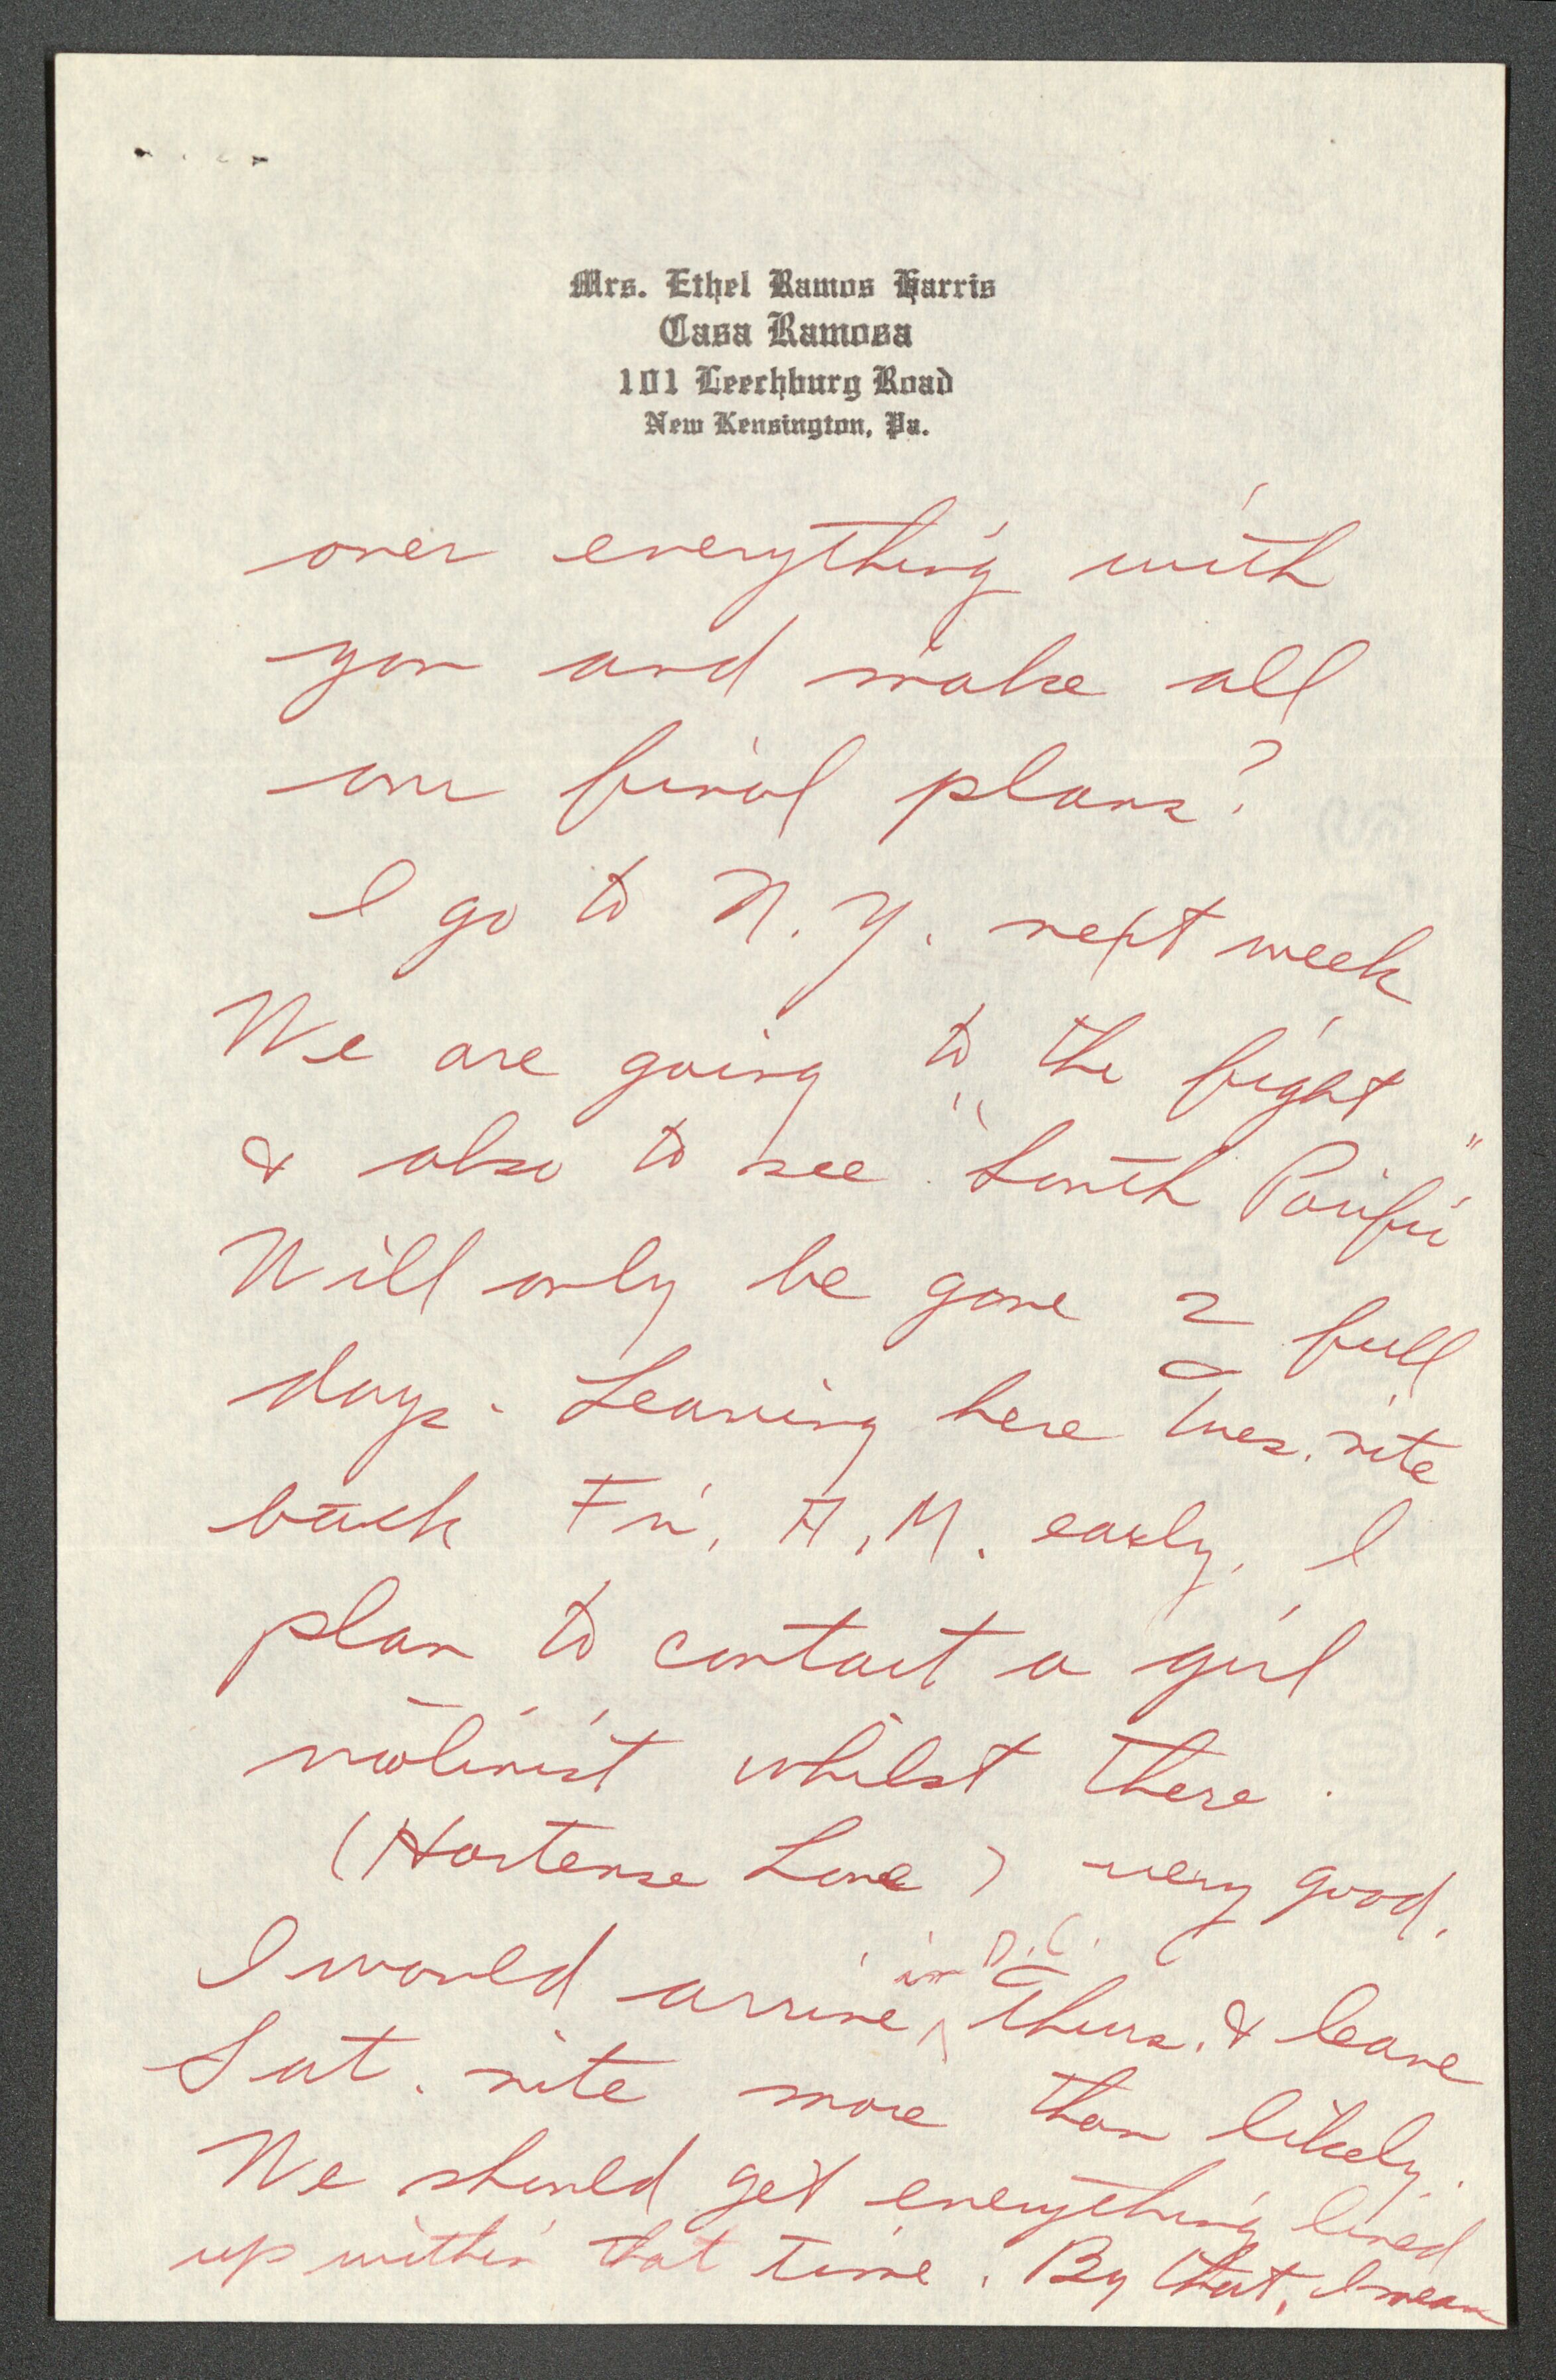 Mrs. Ethel Ramos Harris
Casa Ramosa
101 Leechburg Road
New Kensington, Pa.
over everything with
you and make all
our final plans?
I go to N. Y. next week
We are going to the fight
& also to see "South Pacific"
Will only be gone 2 full
days - Leaving here Tues. nite
back Fri. A. M. early. I
plan to contact a girl
violinist whilst there.
(Hortense Love) very good.
I would arrive in D.C. Thurs. & leave
Sat. nite more than likely.
We should get everything lined
up within that time. By that, I mean